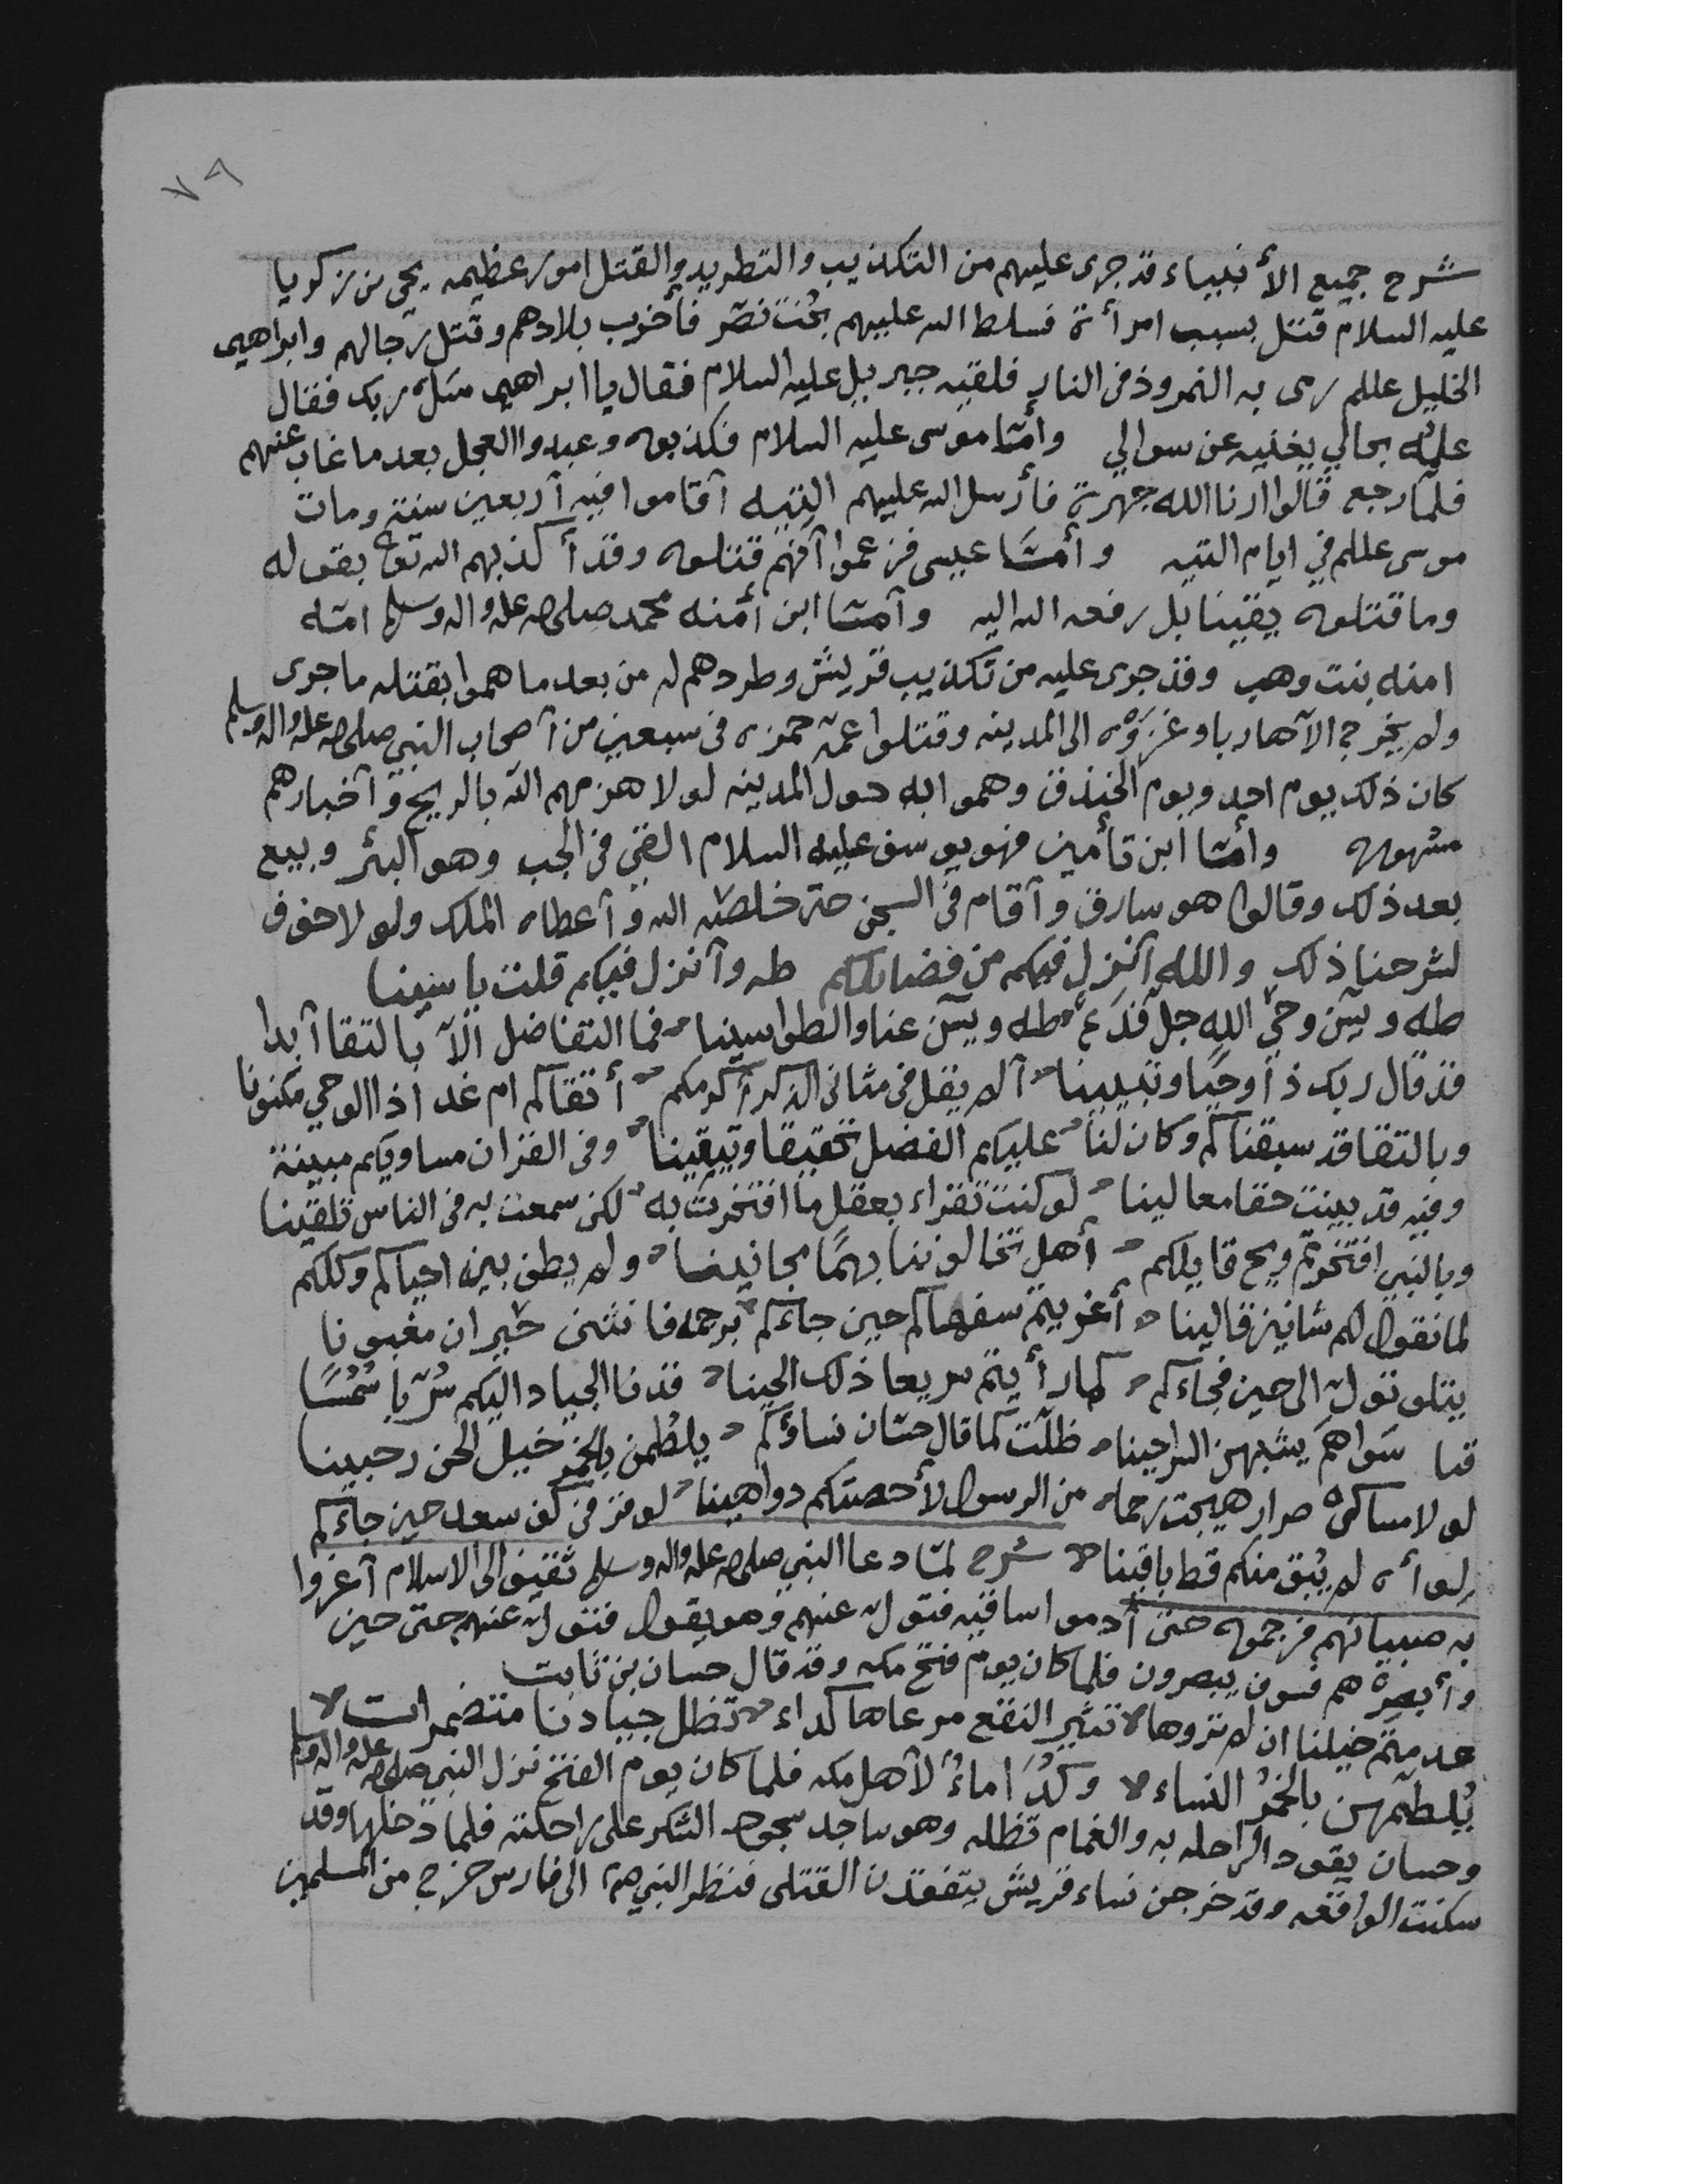 ٧٩
شرح جميع الأنبياء قد جرى عليهم من التكذيب والتطريد والقتل امور عظيمه يحيى بن زكريا
عليه السلام قتل بسبب امرأة فسلط الله عليهم بخت نصر فأخرب بلادهم وقتل رجالهم وابراهيم
الخليل عللم رمى به النمروذ في النار فلقيه جبريل عليه السلام فقال يا ابراهيم سل ربك فقال
علمه بحالي يغنيه عن سوالي وأمّا موسى عليه السلام فكذبوه وعبدوا العجل بعد ما غاب عنهم
فلمّا رجع قالوا ارنا الله جهرة فأرسل الله عليهم التيه أقاموا فيه أربعين سنة ومات
موسى عللم في ايام التيه وأمّا عيسى فزعموا أنهم قتلوه وقد أكذبهم الله تع بقوله
وما قتلوه يقينا بل رفعه الله اليه وأمّا ابن أمنه محمد صلى الله عليه واله وسلم امّه
امنه بنت وهب وقد جرى عليه من تكذيب قريش وطردهم له من بعد ما هموا بقتله ما جرى
ولم يخرج الا هاربا وغزوه الى المدينه وقتلوا عمّه حمزه في سبعين من أصحاب النبي صلى الله عليه واله وسلم
كان ذلك يوم احد ويوم الخندق وهموا به حول المدينه لولا هزمهم الله بالريح وأخبارهم
مشهوره وأمّا ابن تأمين فهو يوسف عليه السلام القي في الجب وهو البئر وبيع
بعد ذلك وقالوا هو سارق وأقام في السجن حتى خلصه الله وأعطاه الملك ولولا خوف
لشرحنا ذلك والله أنزل فيكم من فضايلكم طه وأنزل فيكم قلت ياسينا
طه ويسن وحي الله جل طه ويسن عنا والطواسينا فما التفاضل الّا بالتقا أبدا
قد قال ربك ذا وحيًا وتبيينا ألم يقل في مثاني الذكر أكرمكم أتقاكم ام غدا ذا الوحي مكنونا
وبالتقا قد سبقناكم وكان لنا عليكم الفضل تحقيقا وتيقينا وفي القران مساويكم مبينة
وفيه قد بينت حقا معالينا لو كنت تقراء بعقل ما افتخرت به لكن سمعت به في الناس تلقينا
وبالنبي افتخرتم ويح قايلكم أهل تخالوننا بهمًا مجانينا ولم يطف بين احياكم وكلكم
لما نقول لهم شانيز قالينا أغريتم سفهاكم حين جاءكم برجمه فانثنى حيران مغبونا
يتلو تول الى حين فجاءكم كما رأيتم سريعا ذلك الحينا قدنا الجياد اليكم سرّبا شمسًا
قبا سواهم يشبهن السراحينا ظلّت كما قال حسّان نساؤكم يلطمن بالخمر خيل الحن رحبينا
لولا مساكن صرار هيجت رحما من الرسول لأحصتكم دواهينا لو قر في كف سعد حين جاءكم
لوأه لم يبق منكم قط باقينا شرح لمّا دعا النبي صلى الله عليه واله وسلم ثقيف الى الاسلام أغروا
به صبيانهم فرجموه حتى أدموا ساقيه فتول عنهم وهو يقول فتول عنهم حتى حين
وأبصرهم فسوف يبصرون فلما كان يوم فتح مكه وقد قال حسان بن ثابت
عدمتم خيلنا ان لم تروها تثير النقع مرعاها كداء تظل جيادنا متضمرات
يلطمهن بالخمر النساء وكدا ماءٌ لأهل مكه فلما كان يوم الفتح نزل النبي صلى الله عليه واله وسلم
وحسان يقود الراحله به والغمام تظله وهو ساجد سجود الشكر على راحلته فلما دخلها وقد
سكنت الواقعه وقد خرجن نساء قريش يتفقدن القتلى فنظر النبي الى فارس خرج من المسلمين